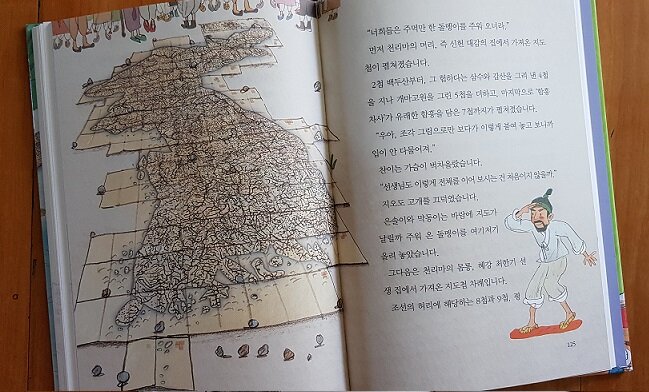 “너희들은 주먹만 한 돌멩이를 주워 오너라.”
먼저 천리마의 머리, 즉 신헌 대감의 집에서 가져온 지도
첩이 펼쳐졌습니다.
2첩 백두산부터, 그 험하다는 삼수와 갑산을 그려 낸 4첩
을 지나 개마고원을 그린 5첩을 더하고, 마지막으로 ‘함흥
차사’가 유래한 함흥을 담은 7첩까지가 펼쳐졌습니다.
“우아, 조각 그림으로만 보다가 이렇게 붙여 놓고 보니까
입이 안 다물어져.”
찬이는 가슴이 벅차올랐습니다.
“선생님도 이렇게 전체를 이어 보시는 건 처음이지 않을까.”
지오도 고개를 끄덕였습니다.
은솔이와 막둥이는 바람에 지도가
날릴까 주워 온 돌멩이를 여기저기
올려 놓았습니다.
그다음은 천리마의 몸통, 혜강 최한기 선
생 집에서 가져온 지도첩 차례입니다.
조선의 허리에 해당하는 8첩과 9첩, 평
125